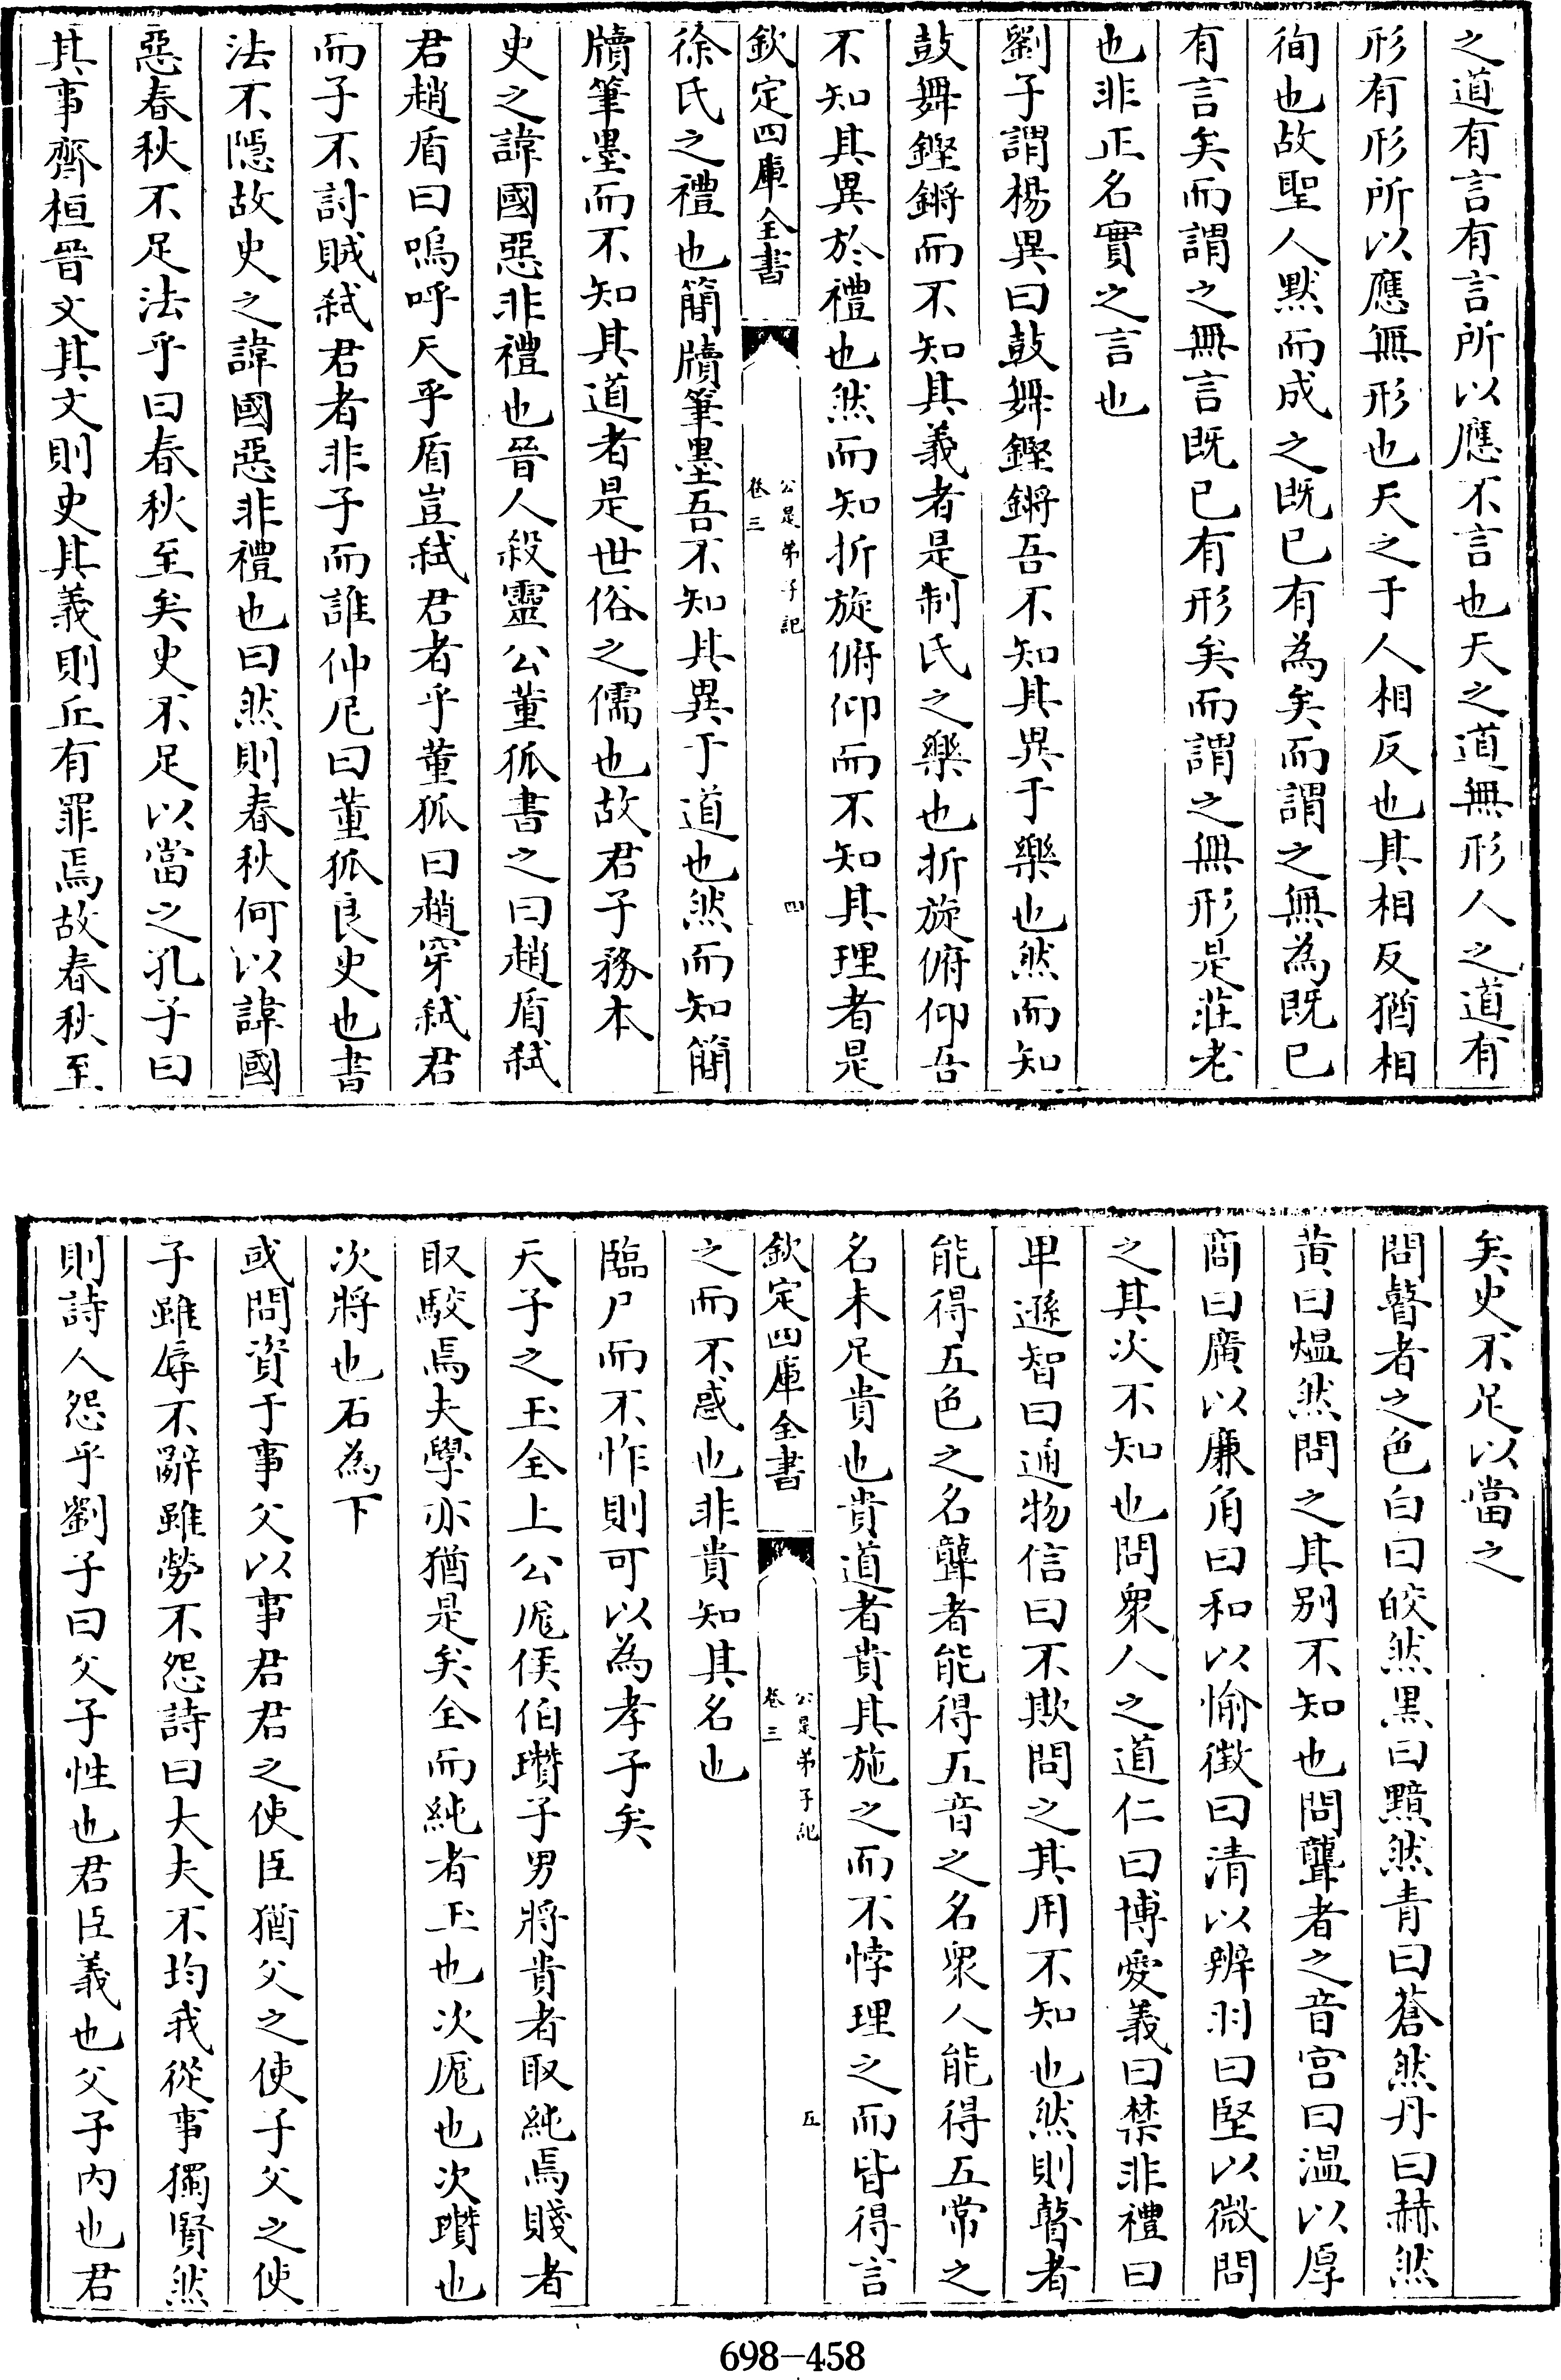 之道有言有言所以應不言也天之道無形人之道有
形有形所以應無形也天之于人相反也其相反猶相
徇也故聖人黙而成之既已有為矣而謂之無為既已
有言矣而謂之無言既已有形矣而謂之無形是莊老
也非正名實之言也
劉子謂楊異曰鼓舞鏗鏘吾不知其異于樂也然而知
鼓舞鏗鏘而不知其義者是制氏之樂也折旋俯仰吾
不知其異於禮也然而知折旋俯仰而不知其理者是
欽定四庫全書
公是弟子記
卷三
四
徐氏之禮也簡牘筆墨吾不知其異于道也然而知簡
牘筆墨而不知其道者是世俗之儒也故君子務本
史之諱國惡非禮也晉人殺靈公董狐書之曰趙盾弑
君趙盾曰嗚呼天乎盾豈弑君者乎董狐曰趙穿弑君
而子不討賊弑君者非子而誰仲尼曰董狐良史也書
法不隱故史之諱國惡非禮也曰然則春秋何以諱國
惡春秋不足法乎曰春秋至矣史不足以當之孔子曰
其事齊桓晉文其文則史其義則丘有罪焉故春秋至
矣史不足以當之
問瞽者之色白曰皎然黒曰黯然青曰蒼然丹曰赫然
黄曰熅然問之其别不知也問聾者之音宫曰温以厚
商曰廣以廉角曰和以愉徴曰清以辨羽曰堅以微問
之其次不知也問衆人之道仁曰博愛義曰禁非禮曰
卑遜智曰通物信曰不欺問之其用不知也然則瞽者
能得五色之名聾者能得五音之名衆人能得五常之
名未足貴也貴道者貴其施之而不悖理之而皆得言
欽定四庫全書
公是弟子記
卷三
五
之而不惑也非貴知其名也
臨尸而不怍則可以為孝子矣
天子之玉全上公厖侯伯瓚子男將貴者取純焉賤者
取駮焉夫學亦猶是矣全而純者玉也次厖也次瓚也
次將也石為下
或問資于事父以事君君之使臣猶父之使子父之使
子雖辱不辭雖勞不怨詩曰大夫不均我從事獨賢然
則詩人怨乎劉子曰父子性也君臣義也父子内也君
698-458